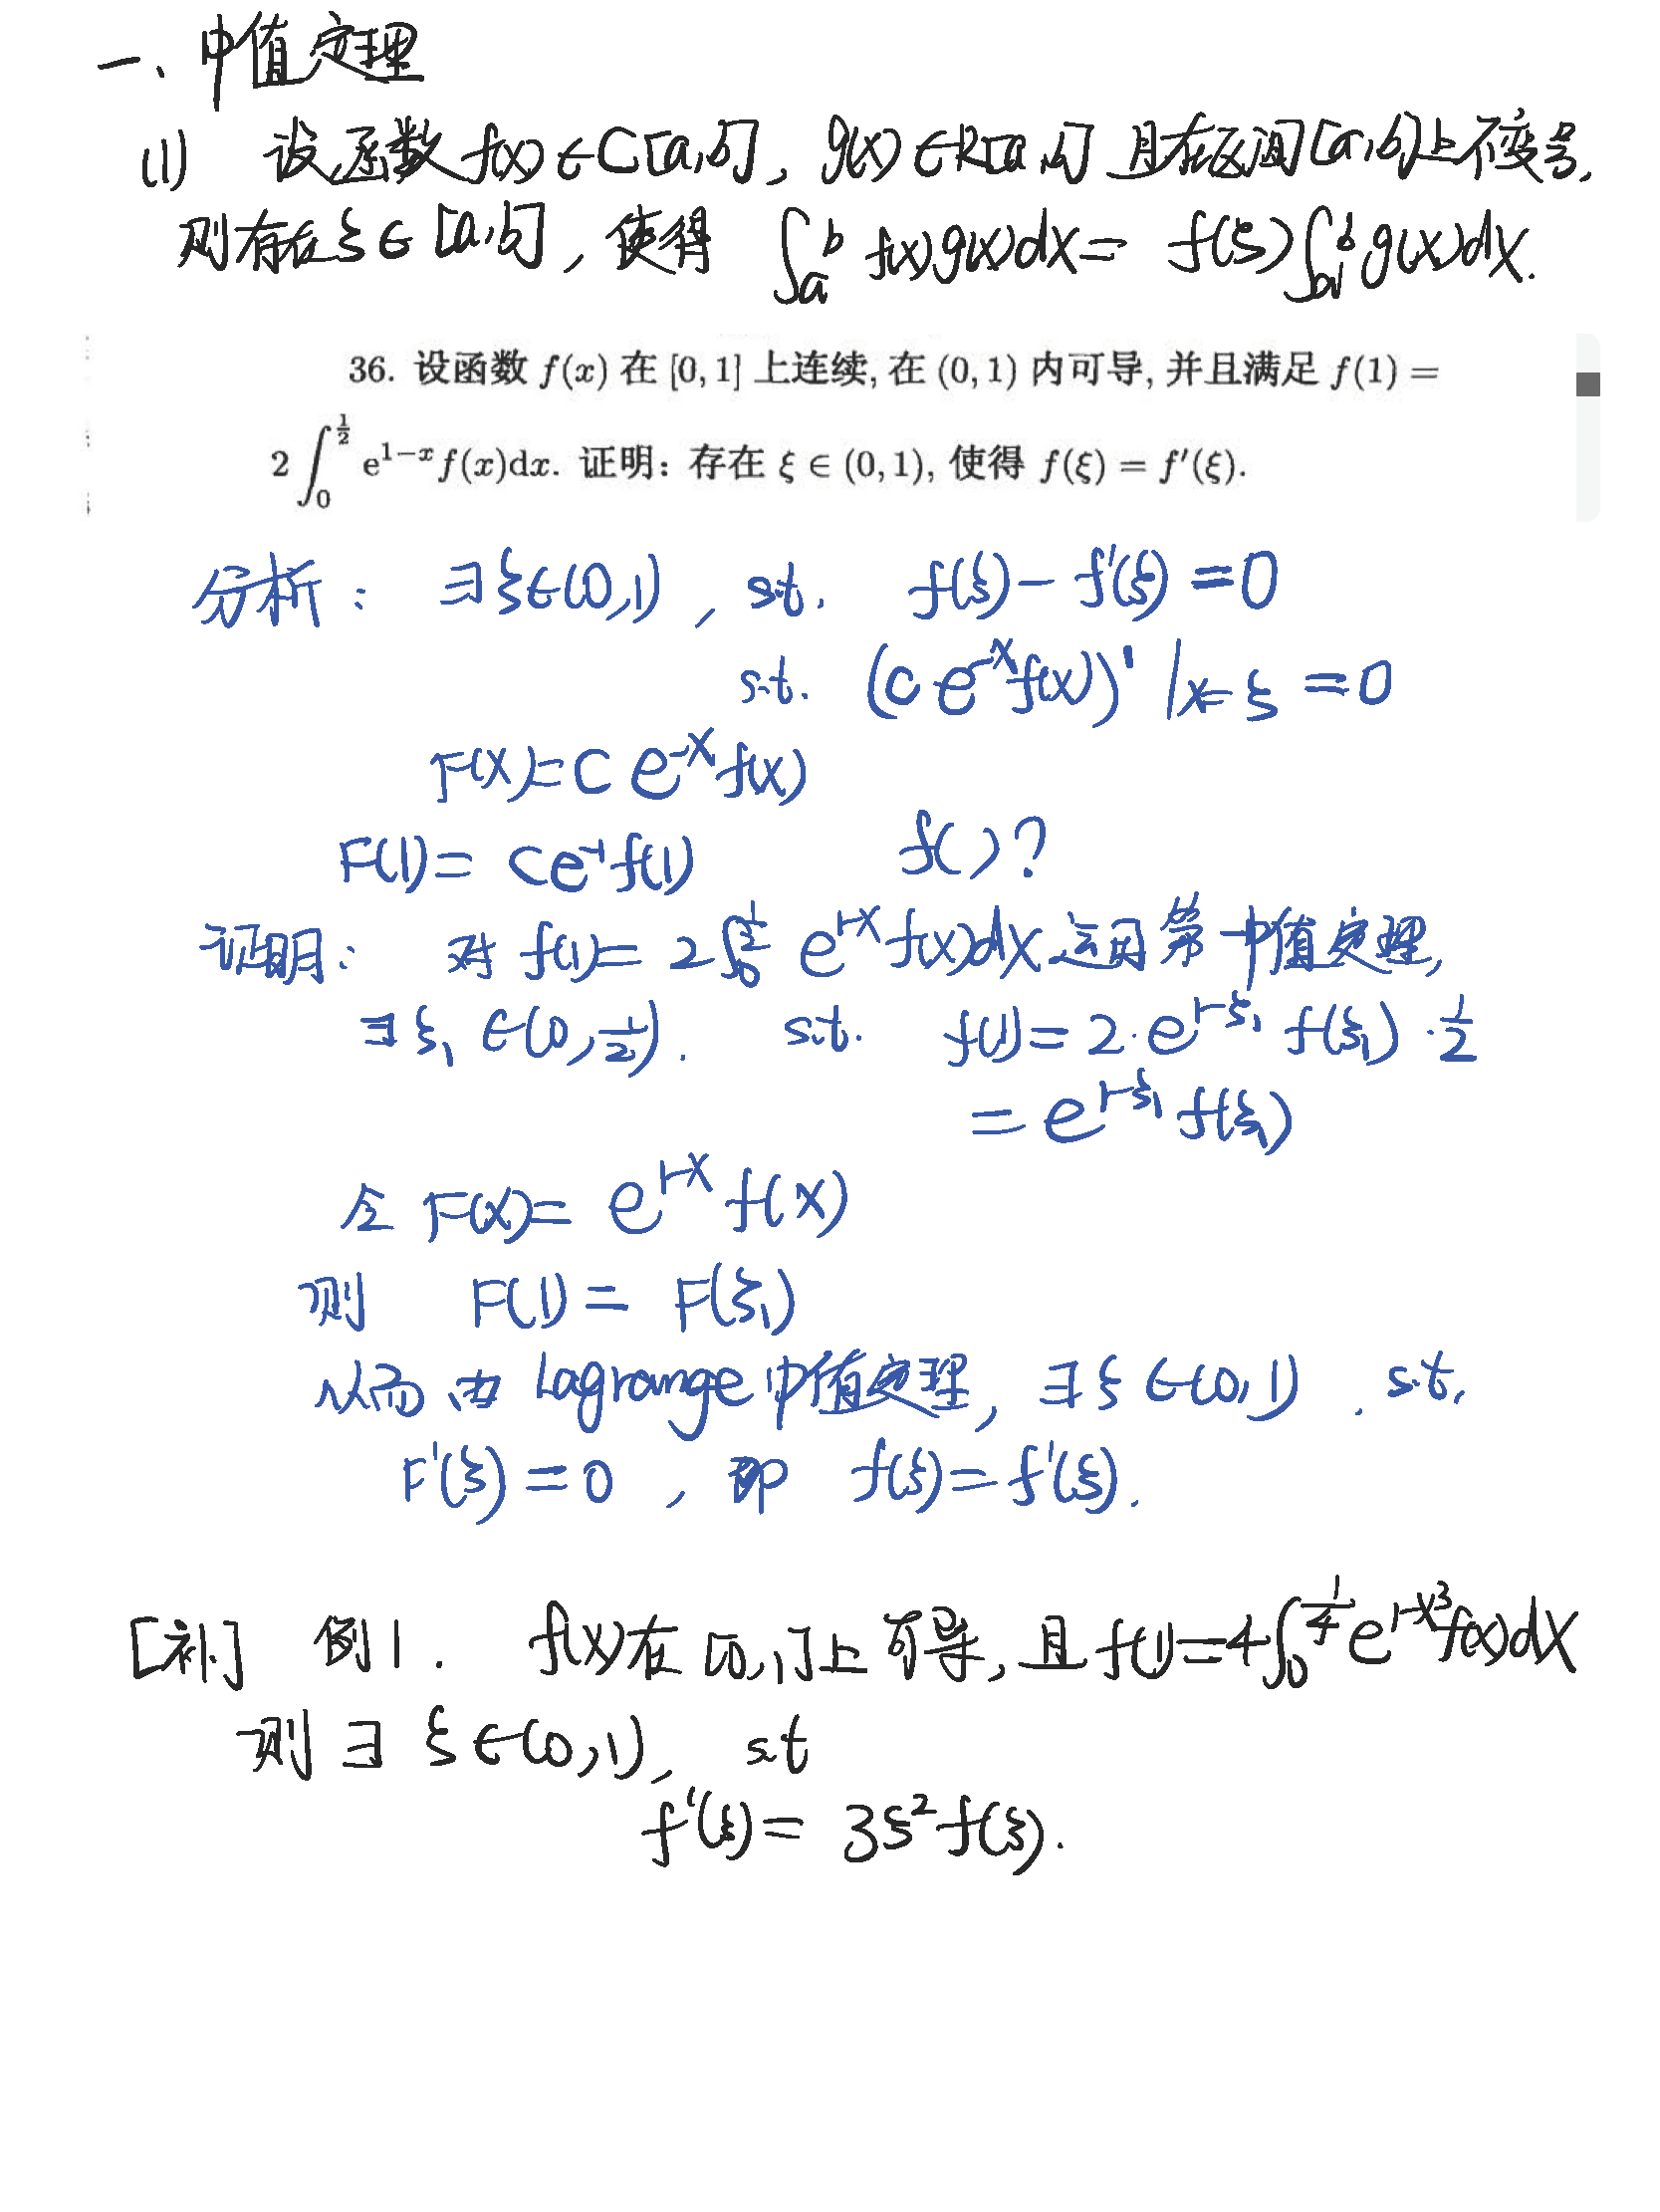 一、中值定理
(1) 设函数 f(x)∈C[a,b], g(x)∈R[a,b] 且在区间[a,b]上不变号,
则存在ξ∈[a,b], 使得 ∫_a^b f(x)g(x)dx = f(ξ)∫_a^b g(x)dx.
36. 设函数 f(x) 在 [0,1] 上连续, 在 (0,1) 内可导, 并且满足 f(1) =
2∫_0^{1/2} e^{1-x} f(x)dx. 证明: 存在 ξ ∈ (0,1), 使得 f(ξ) = f'(ξ).
分析: ∃ξ∈(0,1), s.t. f(ξ)-f'(ξ)=0
s.t. (c e^{-x}f(x))'|_{x=ξ}=0
F(x)=C e^{-x}f(x)
F(1)= Ce^{-1}f(1) f( )?
证明: 对 f(1)=2∫_0^{1/2} e^{1-x}f(x)dx 运用第一中值定理,
∃ξ₁∈(0,1/2). s.t. f(1)=2·e^{1-ξ₁} f(ξ₁)·1/2
=e^{1-ξ₁} f(ξ₁)
令 F(x)= e^{1-x} f(x)
则 F(1)= F(ξ₁)
从而由 Lagrange 中值定理, ∃ξ∈(0,1), s.t.
F'(ξ)=0, 即 f(ξ)=f'(ξ).
[补] 例1. f(x)在[0,1]上可导, 且f(1)=4∫_0^{1/4} e^{1-x^3}f(x)dx
则∃ξ∈(0,1), s.t
f'(ξ)= 3ξ²f(ξ).